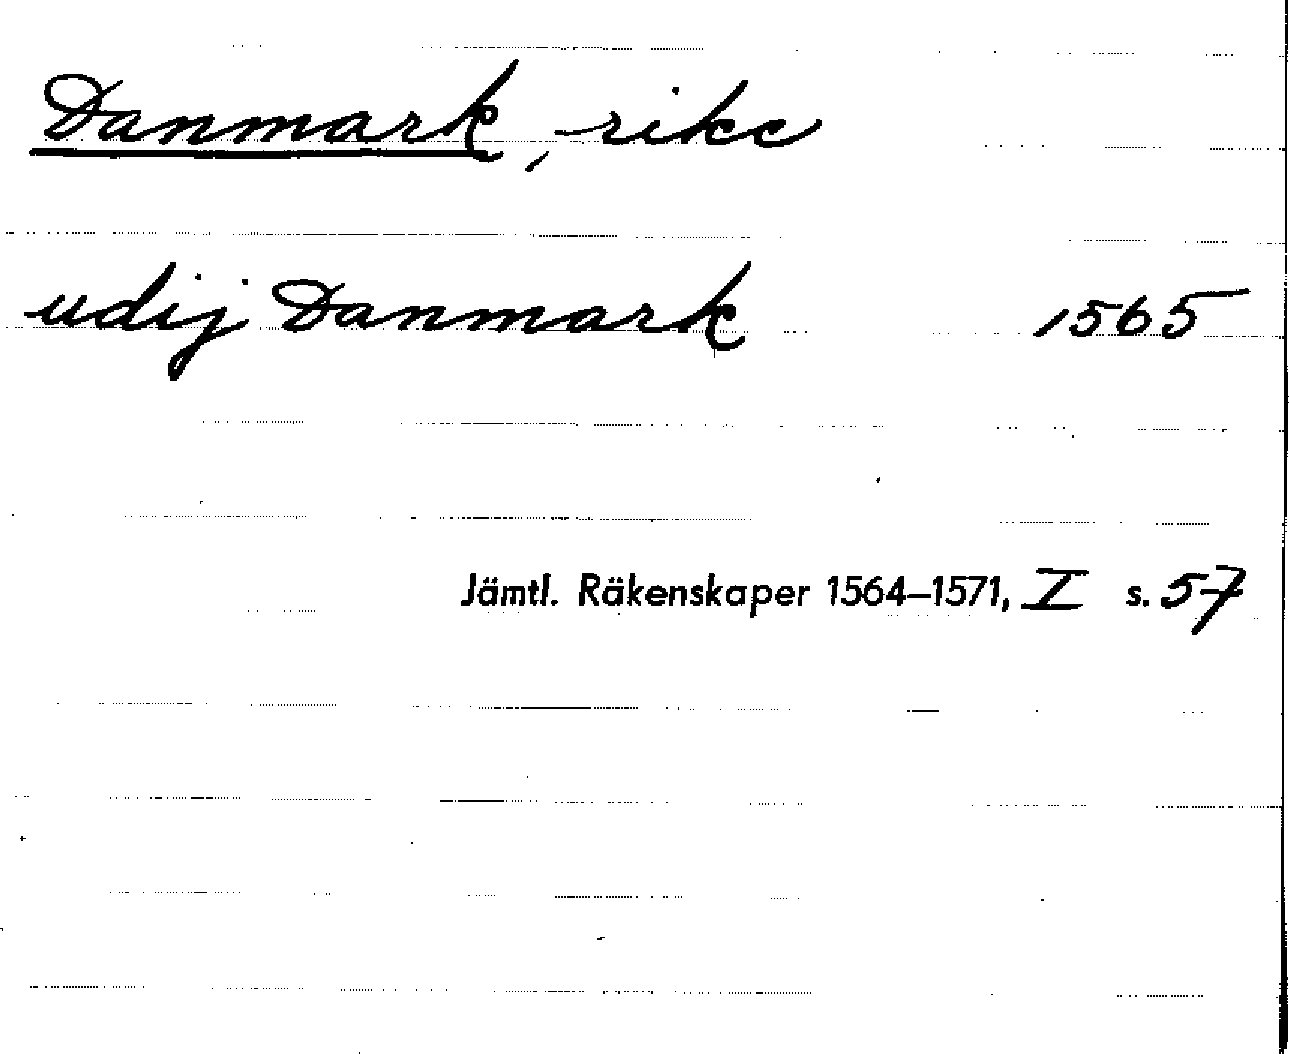 Danmark, rike
udij Danmark 1565
Jämtl. Räkenskaper 1564–1571, I s. 57